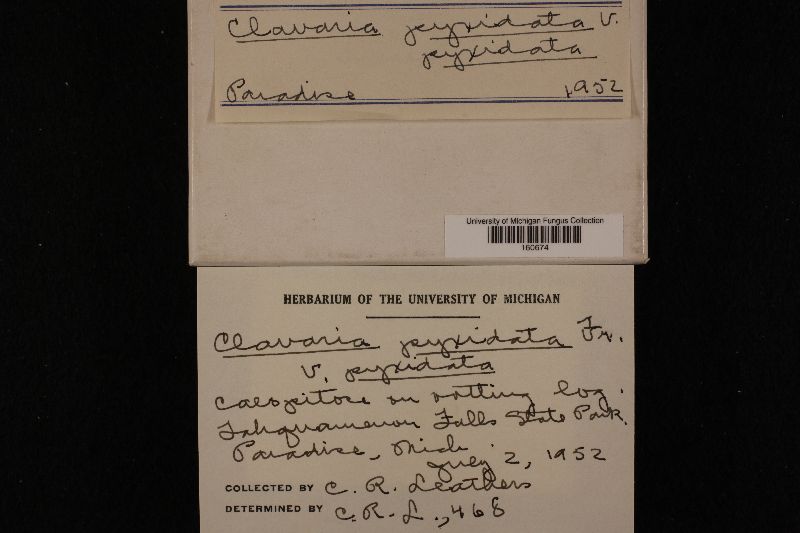 Clavaria pyxidata v.
pyxidata
Paradise 1952
University of Michigan Fungus Collection
160674
HERBARIUM OF THE UNIVERSITY OF MICHIGAN
Clavaria pyxidata Fr.
v. pyxidata
Caespitose on rotting log.
Tahquamenon Falls State Park.
Paradise, Mich.
July 2, 1952
COLLECTED BY C. R. Leathers
DETERMINED BY C.R.L., 468